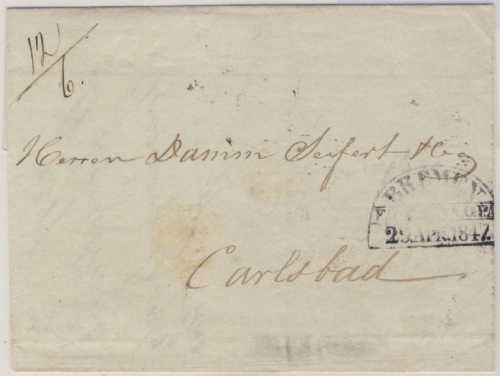 12/6.
Herren Damm Seifert & Co
BREMEN
29 APR. 1847.
Carlsbad